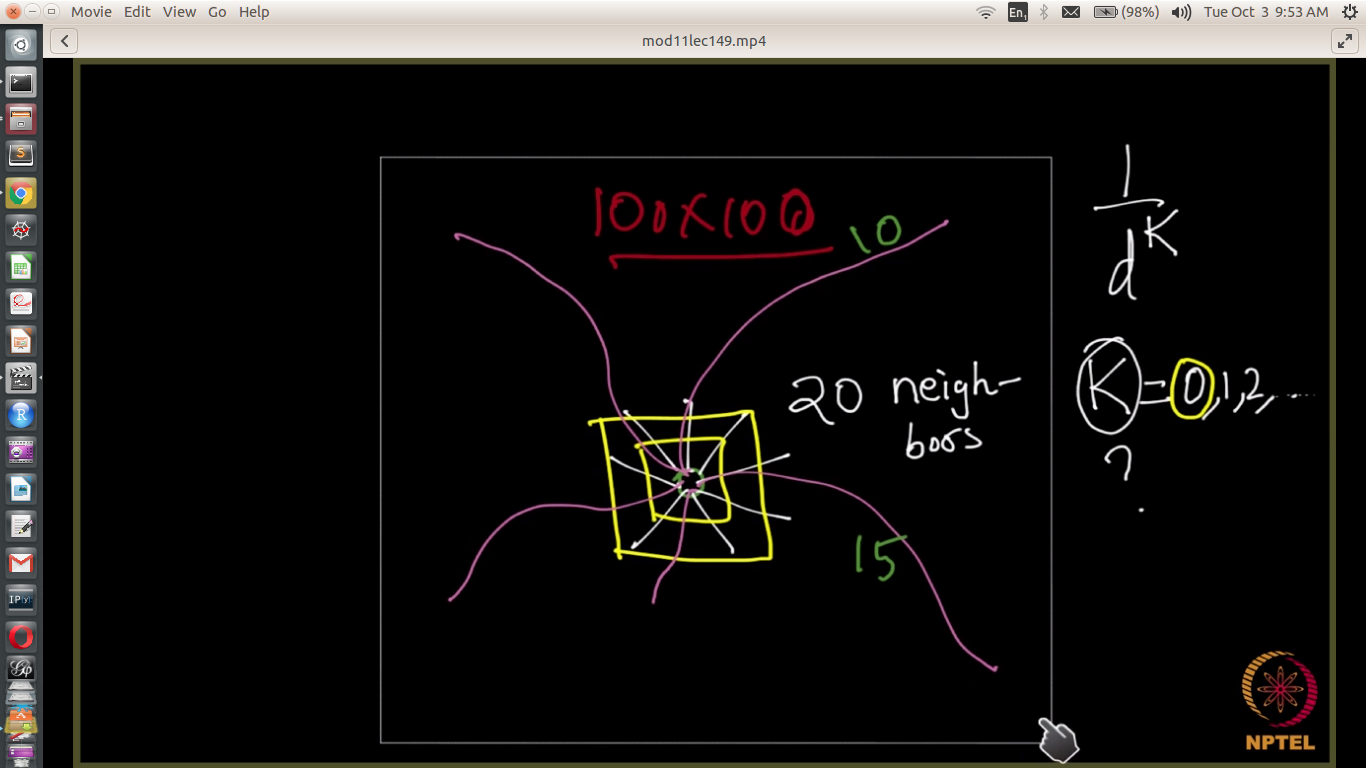 Movie Edit View Go Help
En1 (98%) Tue Oct 3 9:53 AM
mod11lec149.mp4
100X100
10
1
d^K
20 neigh-
bors
K=0,1,2,.....
?
15
NPTEL